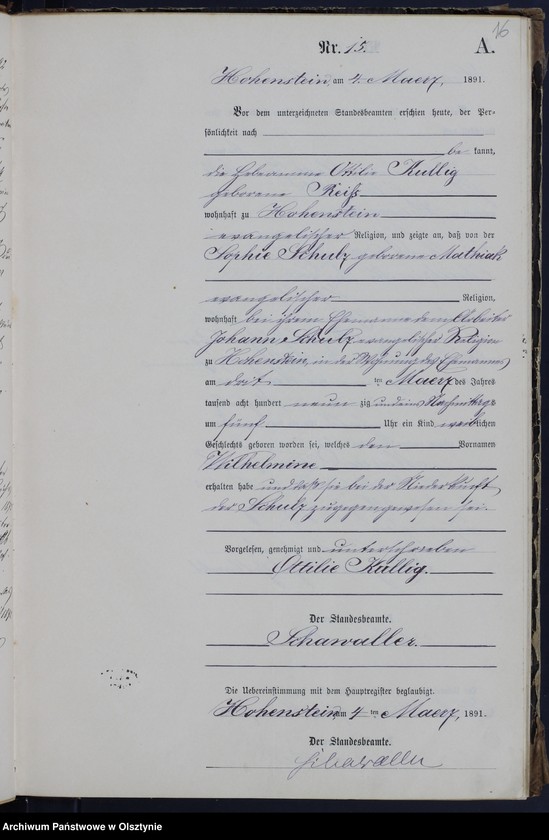 16
Nr. 15.
A.
Hohenstein, am 4. Maerz, 1891.
Vor dem unterzeichneten Standesbeamten erschien heute, der Per-
sönlichkeit nach
be kannt,
die Hebeamme Ottilie Kullig
geborene Reiss
wohnhaft zu Hohenstein
evangelischer Religion, und zeigte an, daß von der
Sophie Schulz geborene Mathiak
evangelischer Religion,
wohnhaft bei ihrem Ehemanne dem Arbeiter
Johann Schulz evangelischer Religion
zu Hohenstein, in der Wohnung des Ehemannes
am ten Maerz des Jahres
tausend acht hundert neun zig und ein Nachmittags
um fünf Uhr ein Kind weiblichen
Geschlechts geboren worden sei, welches den Vornamen
Wilhelmine
erhalten habe und daß sie bei der Niederkunft
der Schulz zugegen gewesen sei.
Vorgelesen, genehmigt und unterschrieben
Ottilie Kullig.
Der Standesbeamte.
Schawaller.
Die Uebereinstimmung mit dem Hauptregister beglaubigt.
Hohenstein, am 4 ten Maerz, 1891.
Der Standesbeamte.
Schawaller
Archiwum Państwowe w Olsztynie